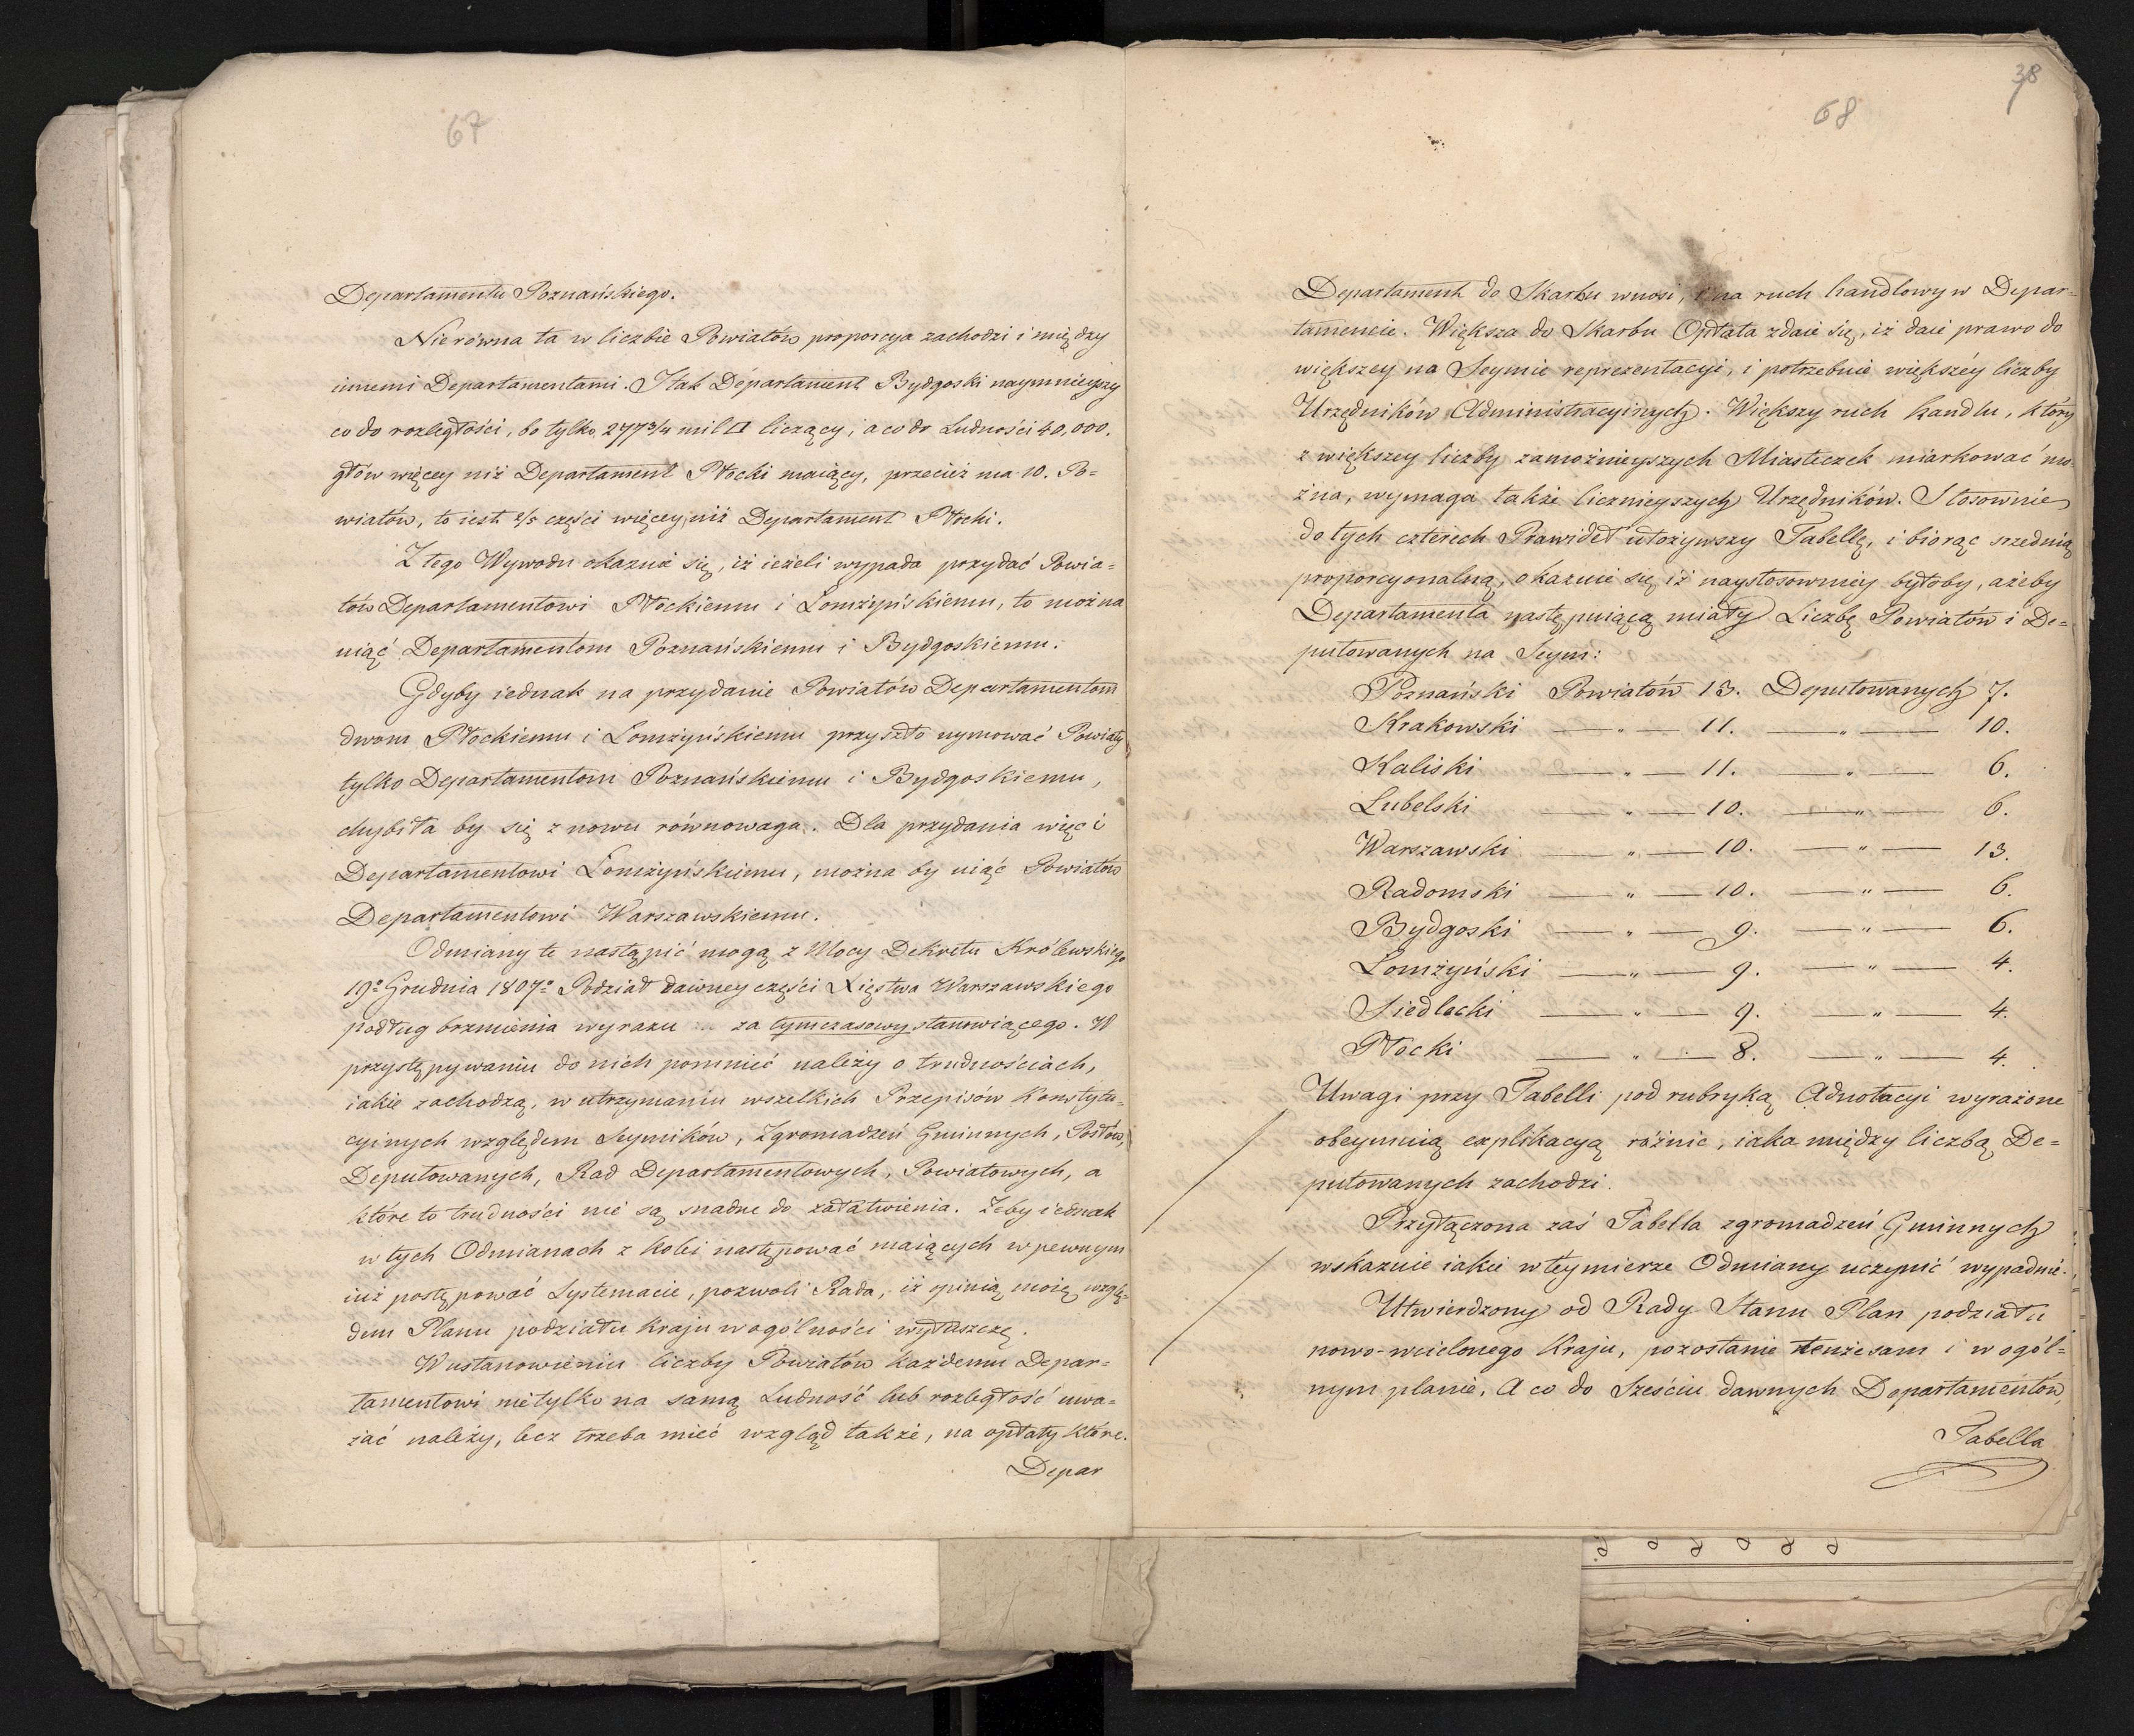 67
Departamentu Poznańskiego.
Nierówna ta w liczbie Powiatów proporcya zachodzi i między
innemi Departamentami. I tak Departament Bydgoski naymnieyszy
co do rozległości, bo tylko 277 3/4 mil □ liczący, a co do Ludności 40,000.
głów więcey niż Departament Płocki maiący, przecież ma 10. Po=
wiatów, to iest 2/5 części więcey niż Departament Płocki.
Z tego Wywodu okazuie się, iż ieżeli wypada przydać Powia=
tów Departamentowi Płockiemu i Łomżyńskiemu, to można
uiąć Departamentom Poznańskiemu i Bydgoskiemu.
Gdyby iednak na przydanie Powiatów Departamentom
dwom Płockiemu i Łomżyńskiemu przyszło uymować Powiaty
tylko Departamentom Poznańskiemu i Bydgoskiemu,
chybiła by się z nowu równowaga. Dla przydania więc i
Departamentowi Łomżyńskiemu, można by uiąć Powiatów
Departamentowi Warszawskiemu.
Odmiany te nastąpić mogą z Mocy Dekretu Królewskiego
19º Grudnia 1807º Podział dawney części Xięstwa Warszawskiego
podług brzmienia wyrazu za tymczasowy stanowiącego. W
przystępywaniu do nich pomnieć należy o trudnościach,
iakie zachodzą, w utrzymaniu wszelkich Przepisów Konstytu=
cyinych względem Seymików, Zgromadzeń Gminnych, Posłów,
Deputowanych, Rad Departamentowych, Powiatowych, a
które to trudności nie są snadne do załatwienia. Żeby iednak
w tych Odmianach z kolei następować maiących w pewnym
iuż postępować Systemacie, pozwoli Rada, iż opinią moię wzglę=
dem Planu podziału kraju w ogólności wyłuszczę.
W ustanowieniu liczby Powiatów każdemu Depar=
tamentowi nietylko na samą Ludność lub rozległość uwa=
żać należy, lecz trzeba mieć wzgląd także, na opłaty które.
Depar
38
68
Departament do Skarbu wnosi, i na ruch handlowy w Depar=
tamencie. Większa do Skarbu Opłata zdaie się, iż daie prawo do
większey na Seymie reprezentacyi, i potrzebuie większéy liczby
Urzędników Administracyinych. Większy ruch handlu, który
z większey liczby zamożnieyszych Miasteczek miarkować mo=
żna, wymaga także licznieyszych Urzędników. Stosownie
do tych czterech Prawideł ułożywszy Tabellę, i biorąc srzednią
proporcyonalną, okazuie się iż naystosowniey byłoby, ażeby
Departamenta następuiącą miały Liczbę Powiatów i De=
putowanych na Seym:
Poznański Powiatów 13. Deputowanych 7.
Krakowski — „ — 11. — „ — 10.
Kaliski — „ — 11. — „ — 6.
Lubelski — „ — 10. — „ — 6.
Warszawski — „ — 10. — „ — 13.
Radomski — „ — 10. — „ — 6.
Bydgoski — „ — 9. — „ — 6.
Łomżyński — „ — 9. — „ — 4.
Siedlecki — „ — 9. — „ — 4.
Płocki — „ — 8. — „ — 4.
Uwagi przy Tabelli pod rubryką Adnotacyi wyrażone
obeymuią explikacyą różnic, iaka między liczbą De=
putowanych zachodzi.
Przyłączona zaś Tabella zgromadzeń Gminnych
wskazuie iakie w teymierze Odmiany uczynić wypadnie.
Utwierdzony od Rady Stanu Plan podziału
nowo-wcielonego Kraju, pozostanie tenże sam i w ogól=
nym planie, A co do Sześciu dawnych Departamentów,
Tabella